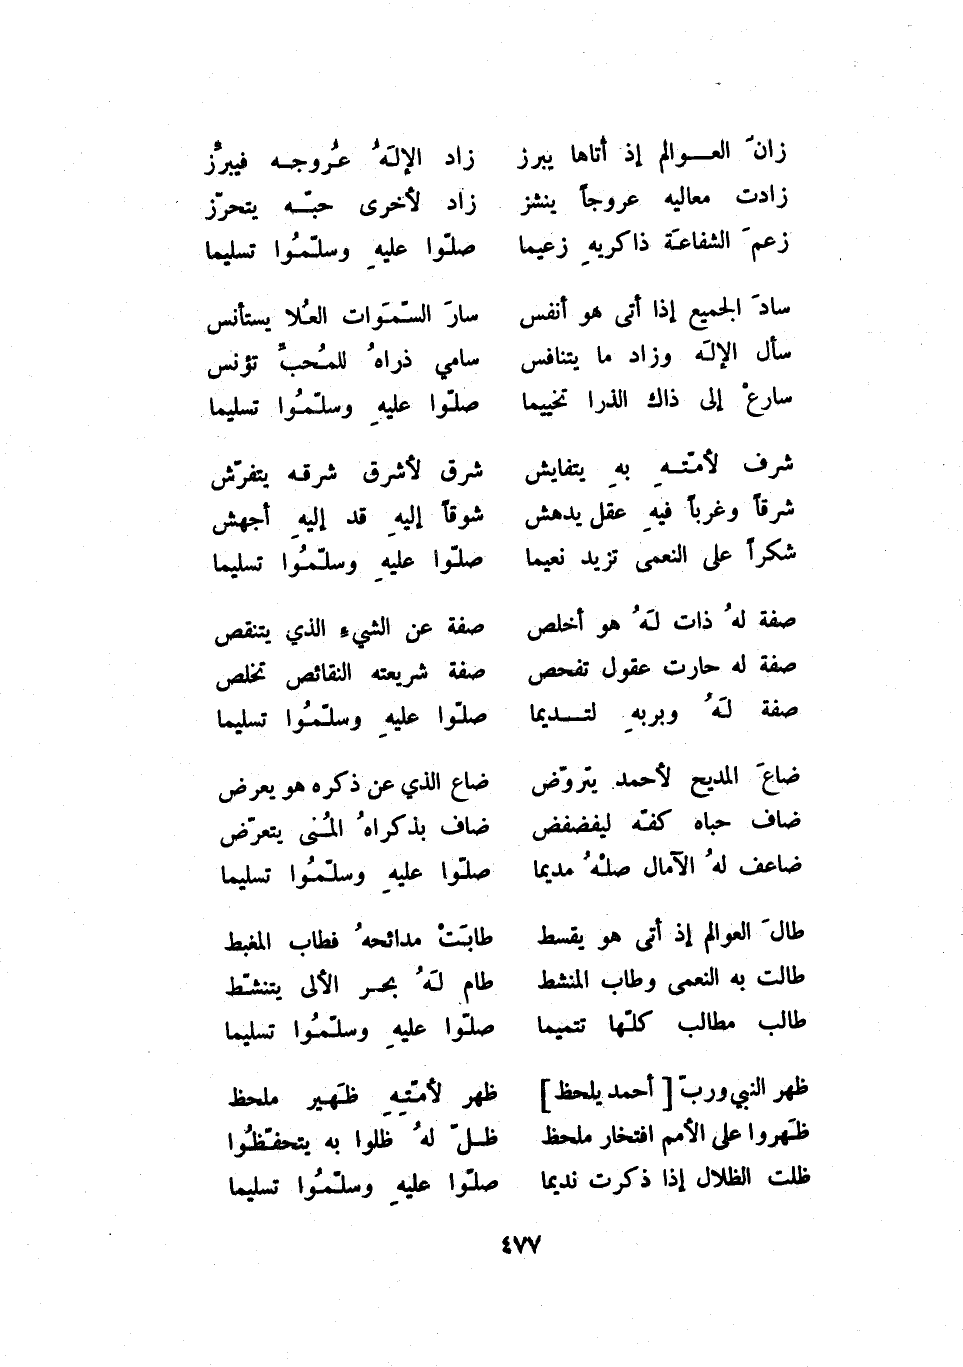 زانَ العـــوالم إذ أتاها يبرز زاد الإلـَهُ عـُروجـه فيبرُّز
زادت معاليه عروجاً ينشز زاد لأخرى حبـّـه يتحرّز
زعمَ الشفاعـَة ذاكريهِ زعيما صلـّوا عليهِ وسلـّمـُوا تسليما
سادَ الجميع إذا أتى هو أنفس سارَ السـّمـَوات العـُلا يستأنس
سأل الإلـَه وزاد ما يتنافس سامي ذراهُ للمـُحبِّ تؤنس
سارعْ إلى ذاك الذرا تخييما صلـّوا عليهِ وسلـّمـُوا تسليما
شرف لأمـّتـهِ بهِ يتفايش شرق لأشرق شرقـه يتفرّش
شرقاً وغرباً فيهِ عقل يدهش شوقاً إليهِ قد إليهِ أجهش
شكراً على النعمى تزيد نعيما صلـّوا عليهِ وسلـّمـُوا تسليما
صفة لهُ ذات لـَهُ هو أخلص صفة عن الشيءِ الذي يتنقص
صفة له حارت عقول تفحص صفة شريعته النقائص تخلص
صفة لـَهُ وبربهِ لتـــديما صلـّوا عليهِ وسلـّمـُوا تسليما
ضاعَ المديح لأحمد يتروّض ضاع الذي عن ذكره هو يعرض
ضاف حباه كفـّه ليفضفض ضاف بذكراهُ المـُنى يتعرّض
ضاعف لهُ الآمال صلـْهُ مديما صلـّوا عليهِ وسلـّمـُوا تسليما
طالَ العوالم إذ أتى هو يقسط طابـَتْ مدائحهُ فطاب المغبط
طالت به النعمى وطاب المنشط طام لـَهُ بحـر الألى يتنشـّط
طالب مطالب كلـّها تتميما صلـّوا عليهِ وسلـّمـُوا تسليما
ظهر النبي وربّ [ أحمد يلحظ ] ظهر لأمـّتـِهِ ظـَهـير ملحظ
ظـَهروا على الأمم افتخار ملحظ ظـلّ لهُ ظلوا به يتحفـّظـُوا
ظلت الظلال إذا ذكرت نديما صلـّوا عليهِ وسلـّمـُوا تسليما
٤٧٧